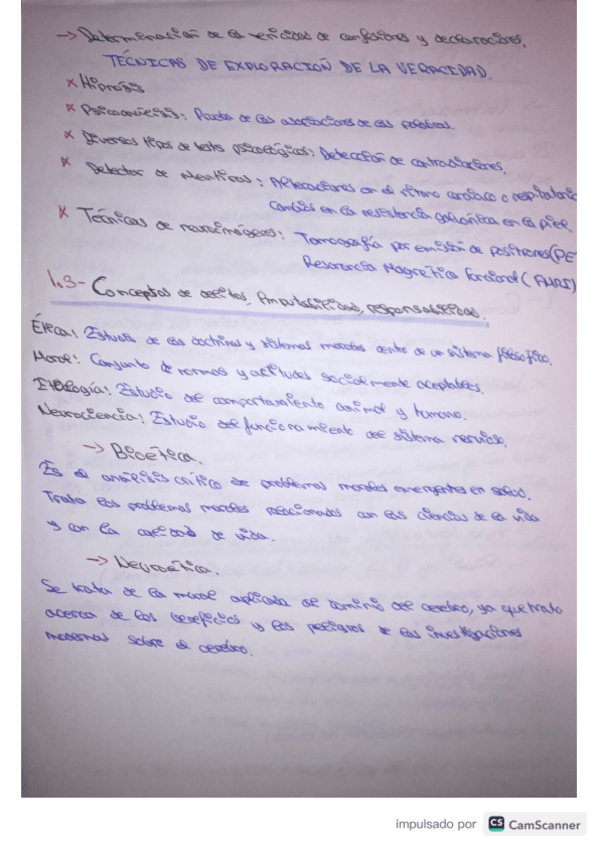 → Determinación de la veracidad de confesiones y declaraciones.
TÉCNICAS DE EXPLORACIÓN DE LA VERACIDAD.
x Hipnosis
x Psicoanálisis: Prueba de las asociaciones de las palabras.
x Diversos tipos de tests psicológicos: Detección de contradicciones.
x Detector de Mentiras: Alteraciones en el ritmo cardiaco o respiratorio
Cambios en la resistencia galvánica en la piel.
x Técnicas de neuroimágenes: Tomografía por emisión de positrones (PE
Resonancia Magnética Funcional (FMRI)
1.3- Conceptos de delitos, Imputabilidad, responsabilidad.
Ética: Estudio de las doctrinas y sistemas morales dentro de un sistema filosófico.
Moral: Conjunto de normas y actitudes socialmente aceptables.
Etología: Estudio del comportamiento animal y humano.
Neurociencia: Estudio del funcionamiento del sistema nervioso.
→ Bioética.
Es el análisis crítico de problemas morales emergentes en salud.
Trata los problemas morales relacionados con las ciencias de la vida
y con la calidad de vida.
→ Neuroética.
Se trata de la moral aplicada al dominio del cerebro, ya que trata
acerca de los beneficios y los peligros de las investigaciones
modernas sobre el cerebro.
impulsado por CS CamScanner